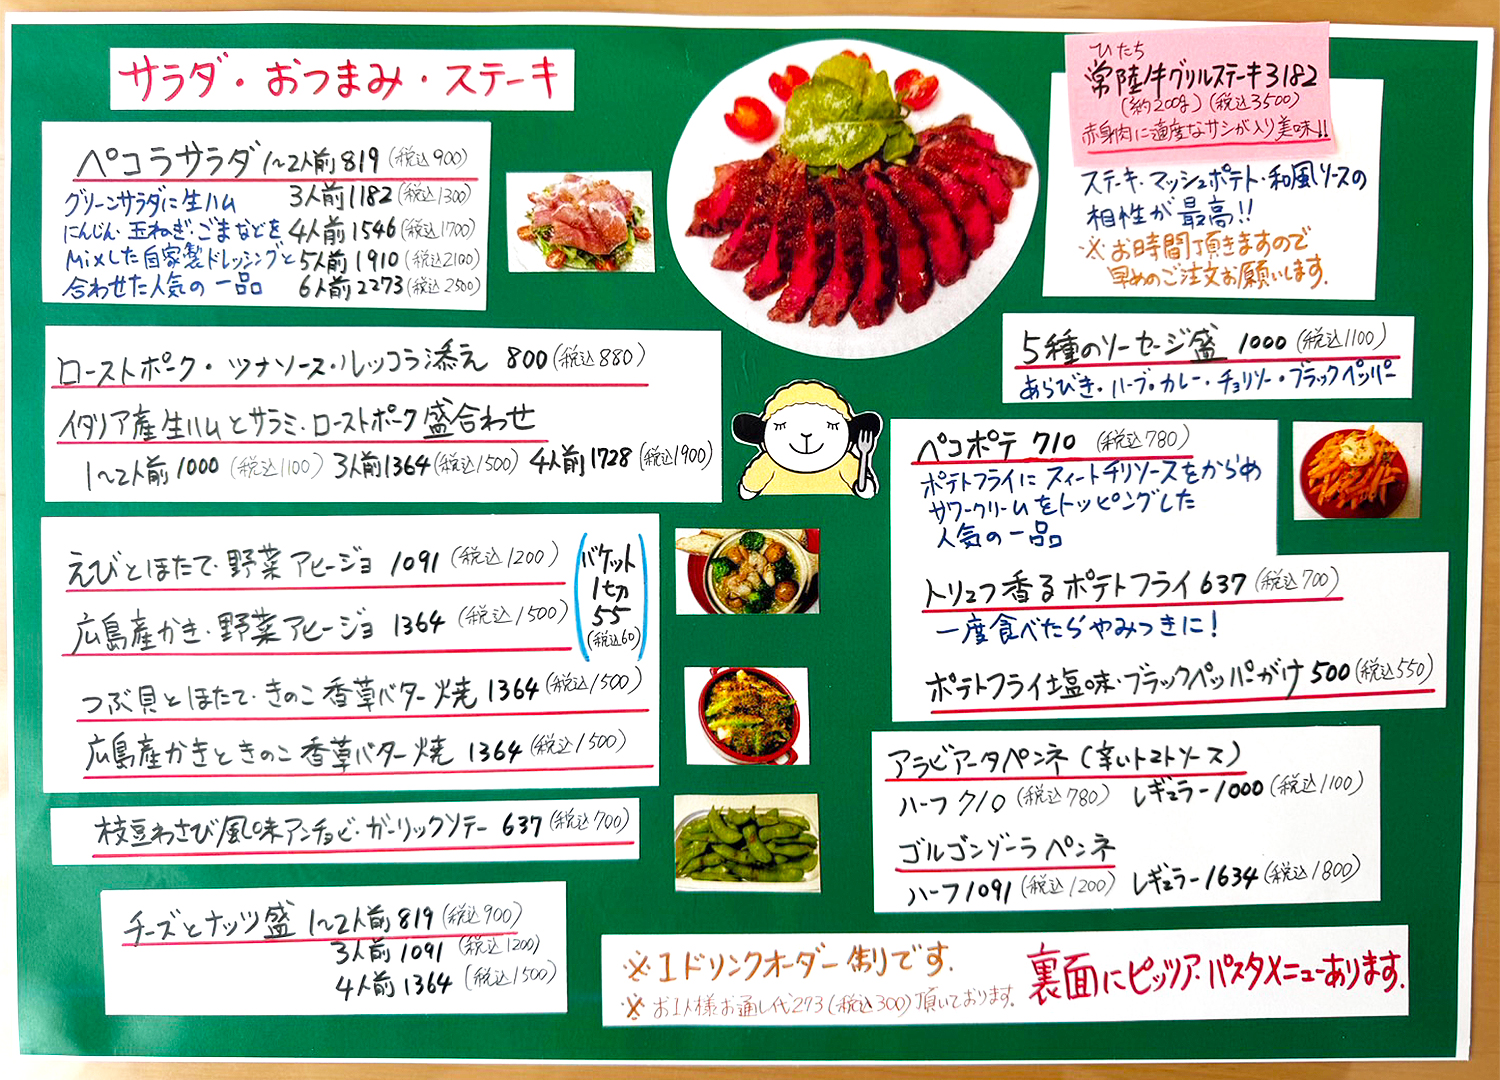 サラダ・おつまみ・ステーキ
ペコラサラダ 1〜2人前 819 (税込900)
3人前 1182 (税込1300)
4人前 1546 (税込1700)
5人前 1910 (税込2100)
6人前 2273 (税込2500)
グリーンサラダに生ハム
にんじん・玉ねぎ・ごまなどを
Mixした自家製ドレッシングと
合わせた人気の一品
ローストポーク・ツナソース・ルッコラ添え 800 (税込880)
イタリア産生ハムとサラミ・ローストポーク盛合わせ
1〜2人前 1000 (税込1100) 3人前 1364 (税込1500) 4人前 1728 (税込1900)
えびとほたて・野菜アヒージョ 1091 (税込1200)
広島産かき・野菜アヒージョ 1364 (税込1500)
バケット
1切
55
(税込60)
つぶ貝とほたて・きのこ香草バター焼 1364 (税込1500)
広島産かきときのこ香草バター焼 1364 (税込1500)
枝豆わさび風味アンチョビ・ガーリックソテー 637 (税込700)
チーズとナッツ盛 1〜2人前 819 (税込900)
3人前 1091 (税込1200)
4人前 1364 (税込1500)
ひたち
常陸牛グリルステーキ 3182
(約200g) (税込3500)
赤身肉に適度なサシが入り美味!!
ステーキ・マッシュポテト・和風ソースの
相性が最高!!
※お時間頂きますので
早めのご注文お願いします.
5種のソーセージ盛 1000 (税込1100)
あらびき・ハーブ・カレー・チョリソー・ブラックペッパー
ペコポテ 710 (税込780)
ポテトフライにスィートチリソースをからめ
サワークリームをトッピングした
人気の一品
トリュフ香るポテトフライ 637 (税込700)
一度食べたらやみつきに!
ポテトフライ塩味・ブラックペッパーがけ 500 (税込550)
アラビアータペンネ (辛いトマトソース)
ハーフ 710 (税込780) レギュラー 1000 (税込1100)
ゴルゴンゾーラペンネ
ハーフ 1091 (税込1200) レギュラー 1634 (税込1800)
※1ドリンクオーダー制です.
※お1人様お通し代273(税込300)頂いております.
裏面にピッツァ・パスタメニューあります.